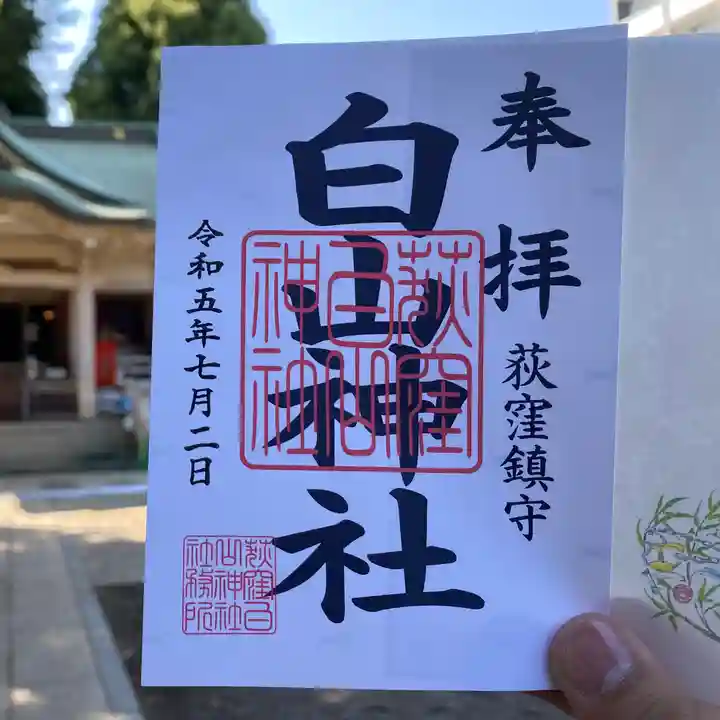 奉拝
荻窪鎮守
白山神社
荻窪
白山
神社
令和五年七月二日
荻窪白
山神社
社務所